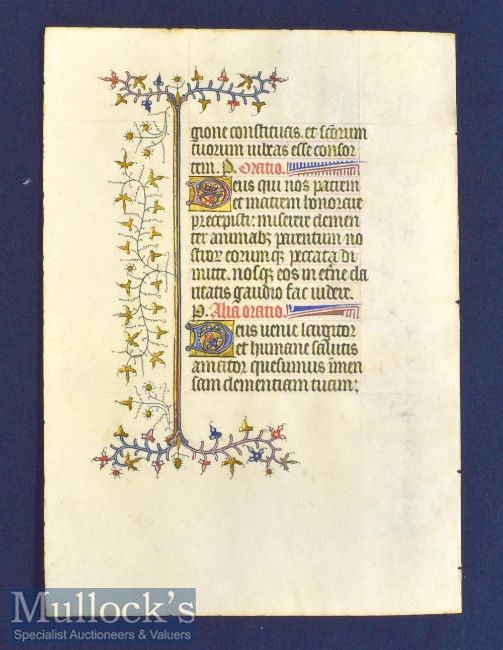 gione constitutis. et sctorum
tuorum iubeas esse consor
tem. P. Oratio.
Deus qui nos patrem
et matrem honorare
precepisti: miserere clemen
ter animabz parentum no
strorum eorumqz peccata di
mitte. nosqz eos in eterne cla
ritatis gaudio fac videre.
P. Alia oratio.
Deus venie largitor
et humane salutis
amator quesumus imen
sam clementiam tuam;
Mullock's
Specialist Auctioneers & Valuers